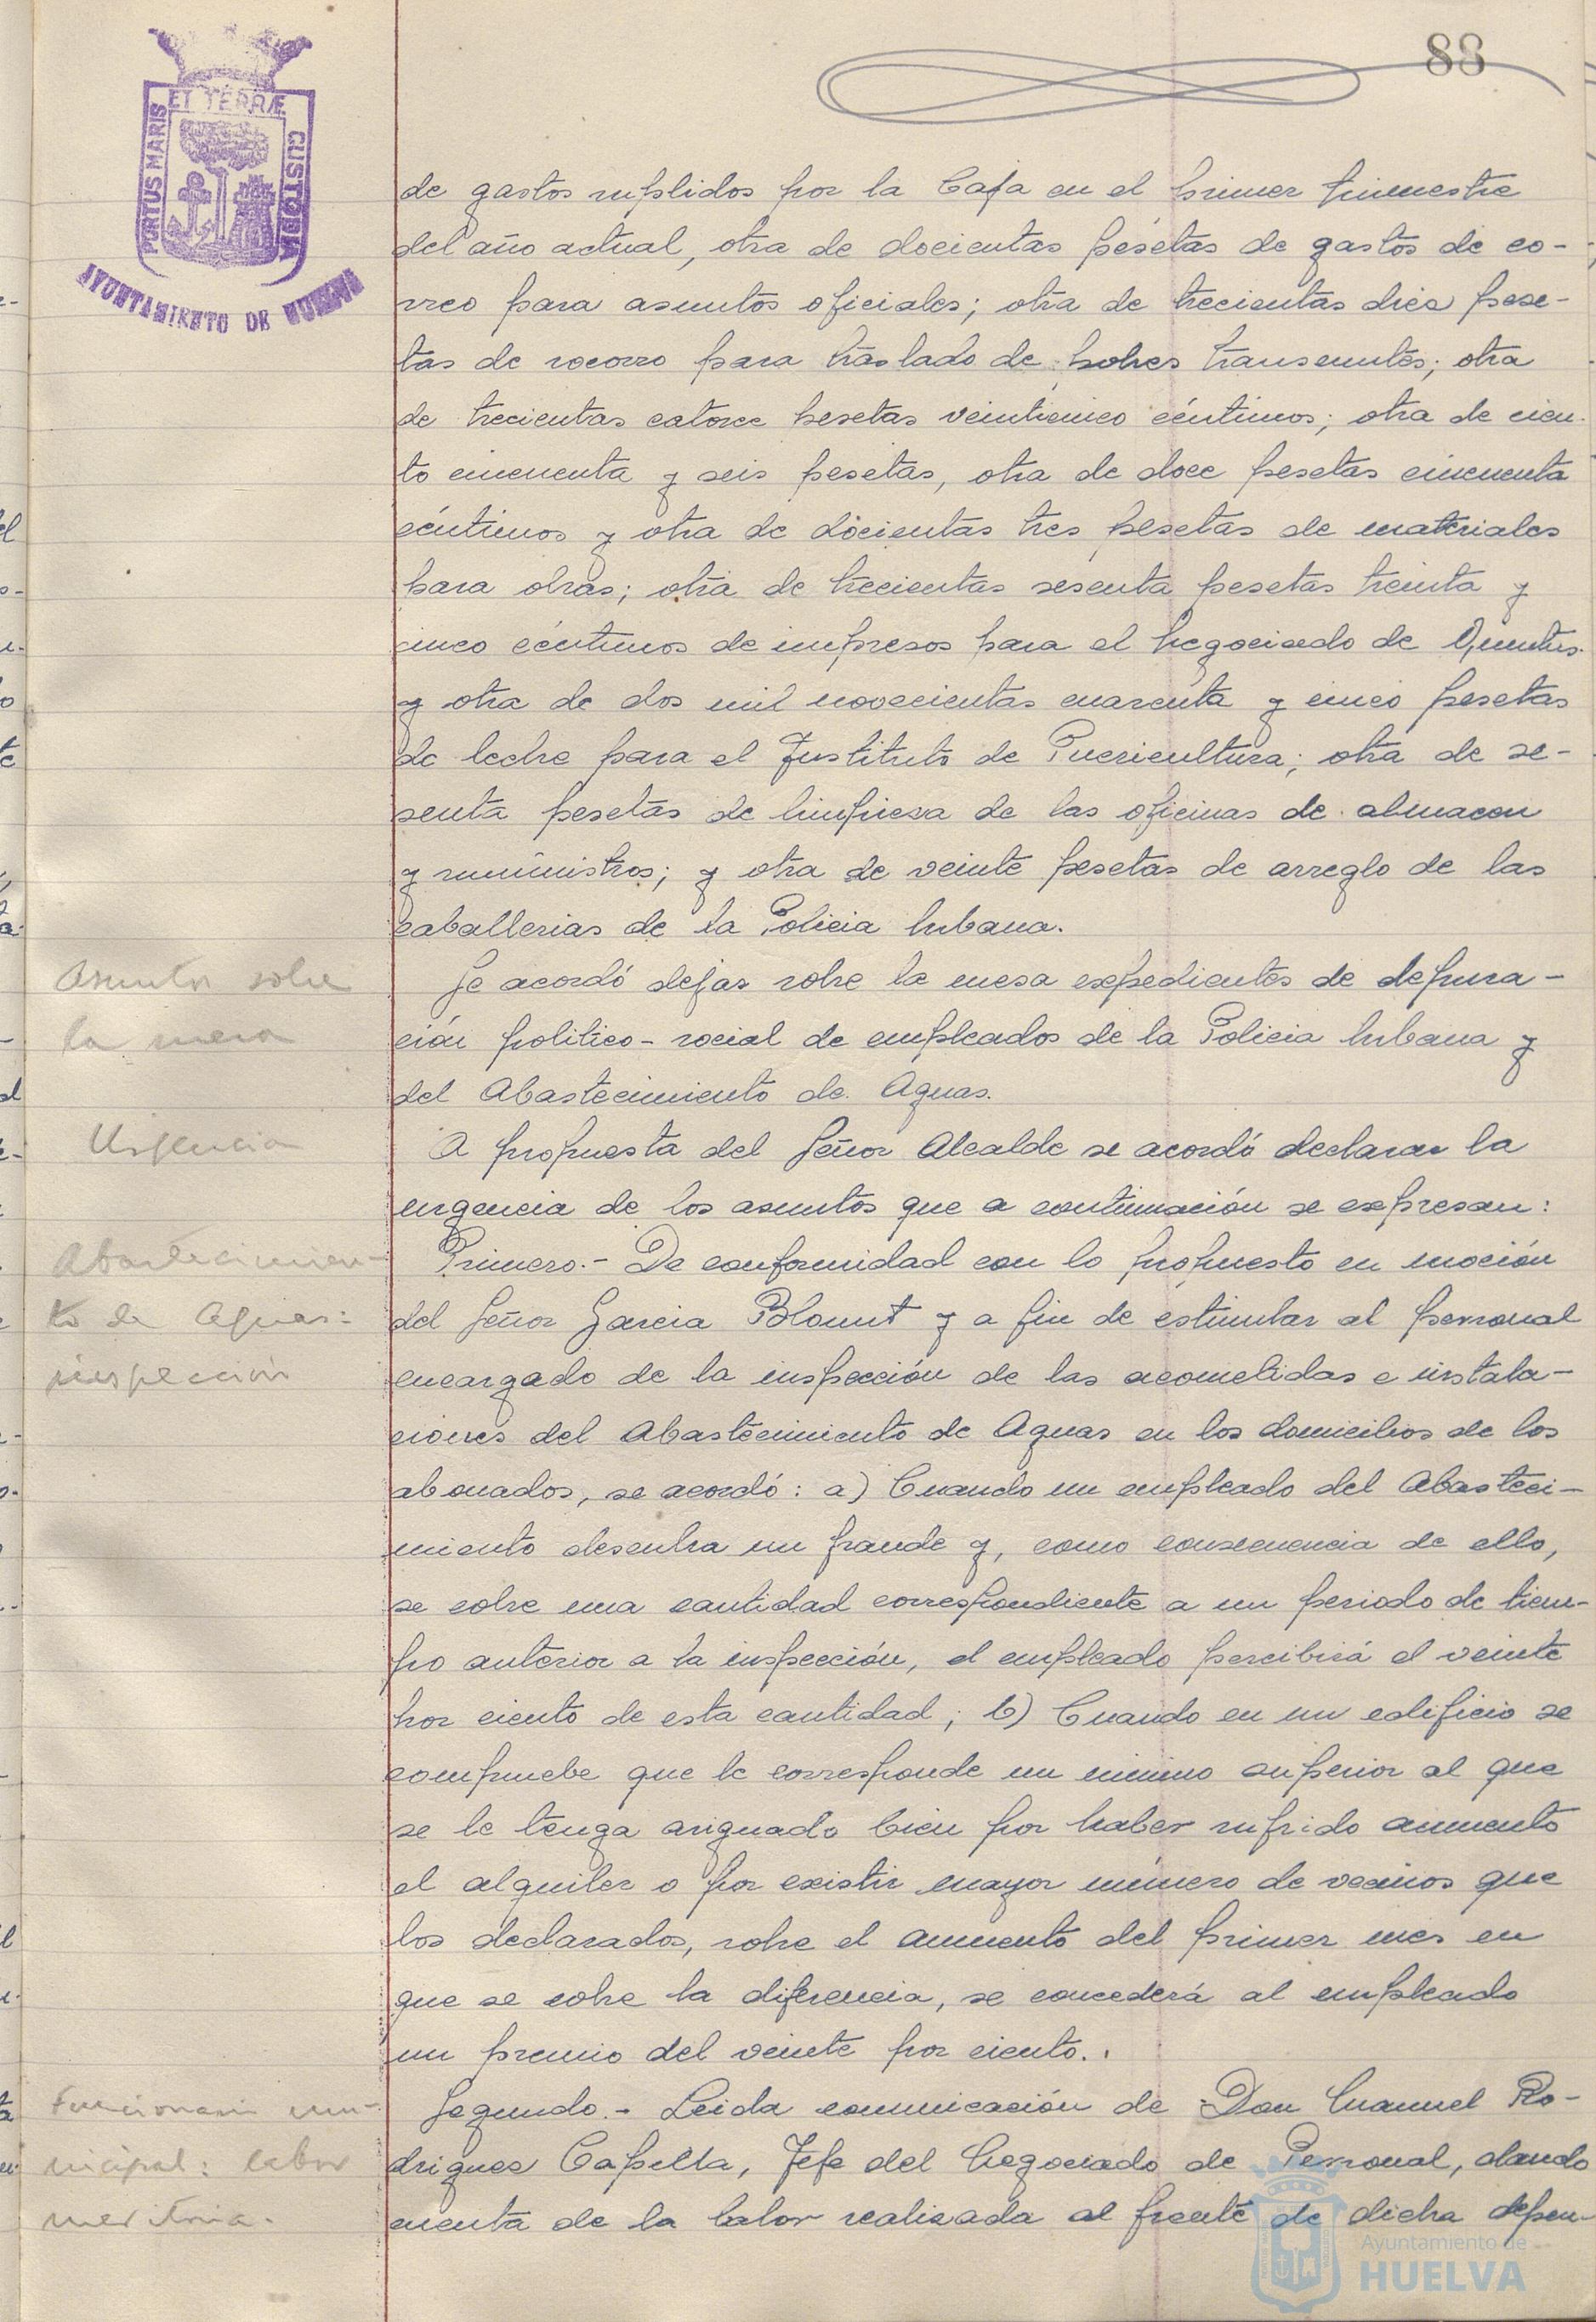 88
PORTUS MARIS ET TERRÆ CUSTODIA
AYUNTAMIENTO DE HUELVA
de gastos suplidos por la Caja en el primer trimestre
del año actual, otra de docientas pesetas de gastos de co-
rreo para asuntos oficiales; otra de trecientas diez pese-
tas de socorro para traslado de pobres transeuntes; otra
de trecientas catorce pesetas veinticinco céntimos; otra de cien-
to cincuenta y seis pesetas, otra de doce pesetas cincuenta
céntimos y otra de docientas tres pesetas de materiales
para obras; otra de trecientas sesenta pesetas treinta y
cinco céntimos de impresos para el Negociado de Quintas
y otra de dos mil novecientas cuarenta y cinco pesetas
de leche para el Instituto de Puericultura; otra de se-
senta pesetas de limpieza de las oficinas de almacen
y suministros; y otra de veinte pesetas de arreglo de las
caballerias de la Policia Urbana.
Asuntos sobre
la mesa
Se acordó dejar sobre la mesa expedientes de depura-
ción politico-social de empleados de la Policia Urbana y
del Abastecimiento de Aguas.
Urgencia
A propuesta del Señor Alcalde se acordó declarar la
urgencia de los asuntos que a continuación se expresan:
Abastecimien-
to de Aguas:
inspección
Primero.- De conformidad con lo propuesto en moción
del Señor Garcia Blount y a fin de estimular al personal
encargado de la inspección de las acometidas e instala-
ciones del Abastecimiento de Aguas en los domicilios de los
abonados, se acordó: a) Cuando un empleado del Abasteci-
miento descubra un fraude y, como consecuencia de ello,
se cobre una cantidad correspondiente a un periodo de tiem-
po anterior a la inspección, el empleado percibirá el veinte
por ciento de esta cantidad; b) Cuando en un edificio se
compruebe que le corresponde un minimo superior al que
se le tenga asignado bien por haber sufrido aumento
el alquiler o por existir mayor número de vecinos que
los declarados, sobre el aumento del primer mes en
que se cobre la diferencia, se concederá al empleado
un premio del veinte por ciento.
Funcionario mu-
nicipal: labor
meritoria.
Segundo.- Leida comunicación de Don Manuel Ro-
driguez Capella, Jefe del Negociado de Personal, dando
cuenta de la labor realizada al frente de dicha depen-
Ayuntamiento de
HUELVA